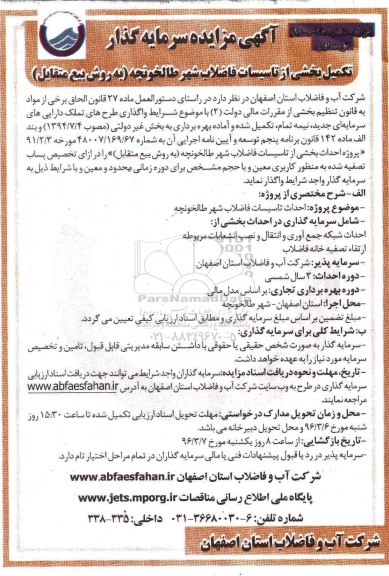 آگهی مزایده سرمایه گذار
تکمیل بخشی از تاسیسات فاضلاب شهر طالخونچه (به روش بیع متقابل)
شرکت آب و فاضلاب استان اصفهان در نظر دارد در راستای دستورالعمل ماده ۲۷ قانون الحاق برخی از مواد
به قانون تنظیم بخشی از مقررات مالی دولت (۲) با موضوع شرایط واگذاری طرح های تملک دارایی های
سرمایه ای جدید، نیمه تمام، تکمیل شده و آماده بهره برداری به بخش غیر دولتی (مصوب ۱۳۹۴/۷/۴) و بند
الف ماده ۱۴۲ قانون برنامه پنجم توسعه و آیین نامه اجرایی آن به شماره ۴۸۰۰۷/۱۶۹/۶۷ مورخه ۹۱/۲/۳
«پروژه احداث بخشی از تاسیسات فاضلاب شهر طالخونچه (به روش بیع متقابل)» را در ازای تخصیص پساب
تصفیه شده به منظور کاربری معین و با حجم مشخص برای دوره زمانی محدود و معین و با شرایط ذیل به
سرمایه گذار واجد شرایط واگذار نماید.
الف- شرح مختصری از پروژه:
- موضوع پروژه: احداث تاسیسات فاضلاب شهر طالخونچه
- شامل سرمایه گذاری در احداث بخشی از:
احداث شبکه جمع آوری و انتقال و نصب انشعابات مربوطه
ارتقاء تصفیه خانه فاضلاب
- سرمایه پذیر: شرکت آب و فاضلاب استان اصفهان
- دوره احداث: ۳ سال شمسی
- دوره بهره برداری تجاری: بر اساس مدل مالی
- محل اجرا: استان اصفهان - شهر طالخونچه
- مبلغ تضمین بر اساس مبلغ سرمایه گذاری و مطابق اسناد ارزیابی کیفی تعیین می گردد.
ب: شرایط کلی برای سرمایه گذاری:
- سرمایه گذار به صورت شخص حقیقی یا حقوقی با داشتن سابقه مدیریتی قابل قبول، تامین و تخصیص
سرمایه مورد نیاز را به عهده خواهد داشت.
- تاریخ، مهلت و نحوه دریافت اسناد مزایده: سرمایه گذاران واجد شرایط می توانند جهت دریافت اسناد ارزیابی
سرمایه گذاری در طرح به وب سایت شرکت آب و فاضلاب استان اصفهان به آدرس www.abfaesfahan.ir
مراجعه نمایند.
- محل و زمان تحویل مدارک درخواستی: مهلت تحویل اسناد ارزیابی تکمیل شده تا ساعت ۱۵:۳۰ روز
شنبه مورخ ۹۶/۳/۶ و محل تحویل دبیرخانه می باشد.
- تاریخ بازگشایی: از ساعت ۸ روز یکشنبه مورخ ۹۶/۳/۷
- سرمایه پذیر در رد یا قبول پیشنهادات فنی یا مالی سرمایه گذاران در تمام مراحل اختیار تام دارد.
شرکت آب و فاضلاب استان اصفهان www.abfaesfahan.ir
پایگاه ملی اطلاع رسانی مناقصات www.jets.mporg.ir
شماره تلفن: ۶-۳۶۶۸۰۰۳۰-۰۳۱ داخلی: ۳۳۵-۳۳۸
شرکت آب و فاضلاب استان اصفهان